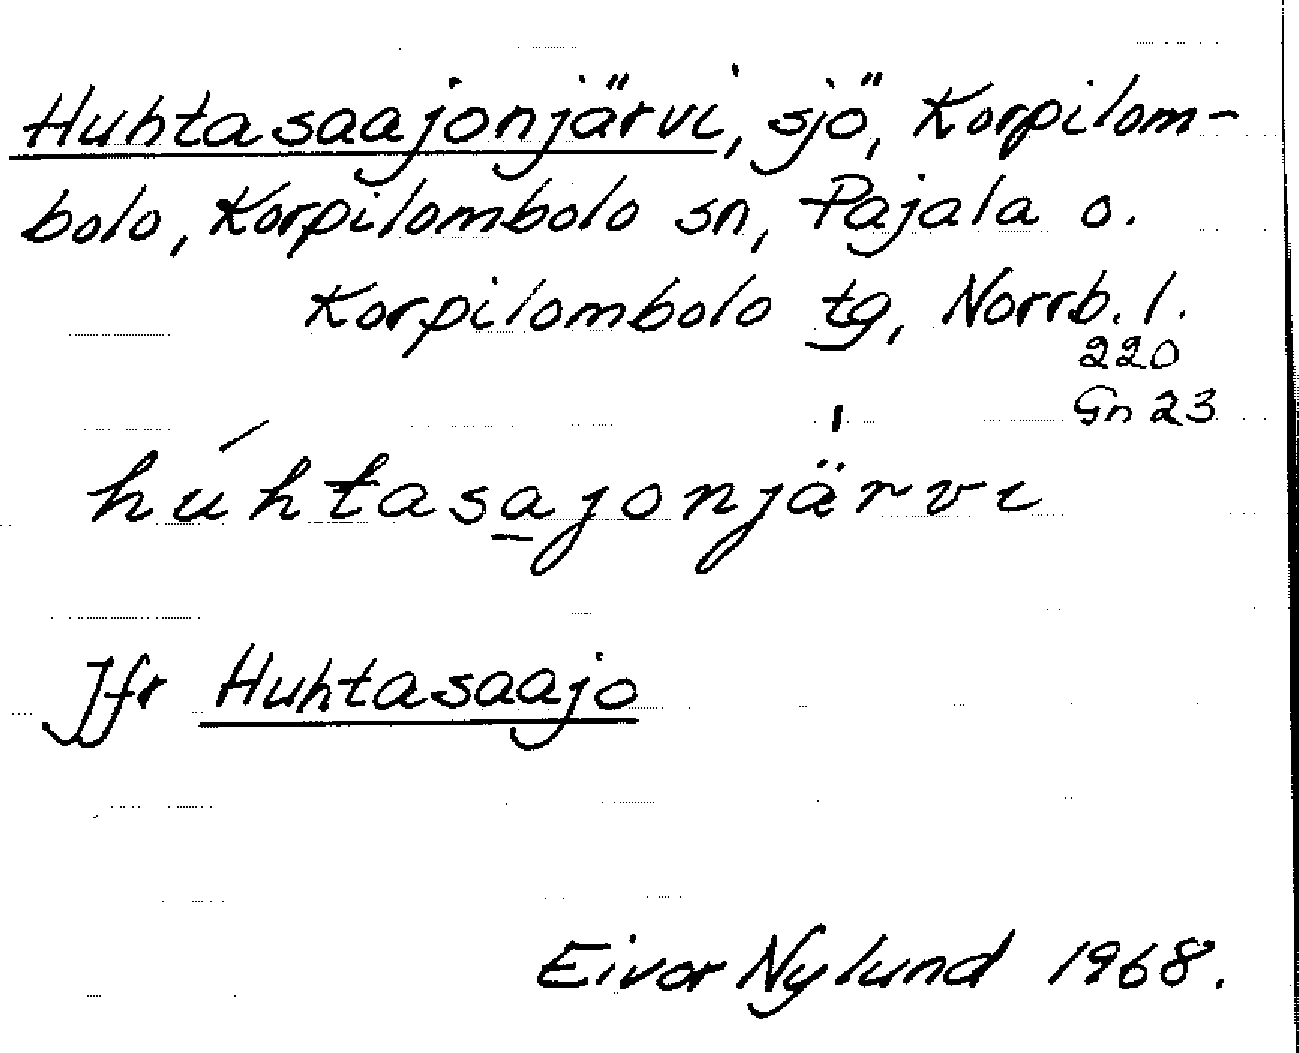 Huhtasaajonjärvi, sjö, Korpilom-
bolo, Korpilombolo sn, Pajala o.
Korpilombolo tg, Norrb. l.
220
Gn 23
húhtasa̱jonjä̍rvi
Jfr Huhtasaajo
Eivor Nylund 1968.